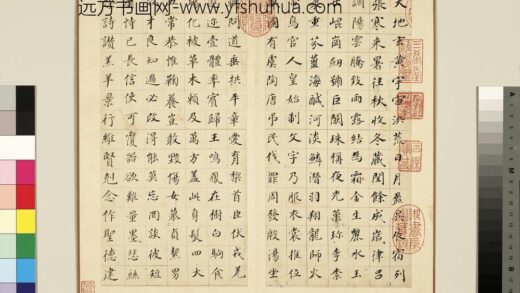 远方书画网-www.yfshuhua.com
天地玄黃宇宙洪荒日月盈昃辰宿列
張寒来暑往秋收冬藏閏餘成歲律吕
調陽雲騰致雨露結為霜金生麗水玉
崐崗劒號巨闕珠稱夜光菓珍李柰
重芥薑海鹹河淡鱗潛羽翔龍師火
鳥官人皇始制文字乃服衣裳推位
國有虞陶唐弔民伐罪周發殷湯坐
問道垂拱平章愛育黎首臣伏戎羌
邇壹體率賓歸王鳴鳳在樹白駒食
化被草木賴及萬方蓋此身髮四大
常恭惟鞠養豈敢毀傷女慕貞絜男
才良知過必改得能莫忘罔談彼短
恃己長信使可覆器欲難量墨悲絲
詩讃羔羊景行維賢剋念作聖德建